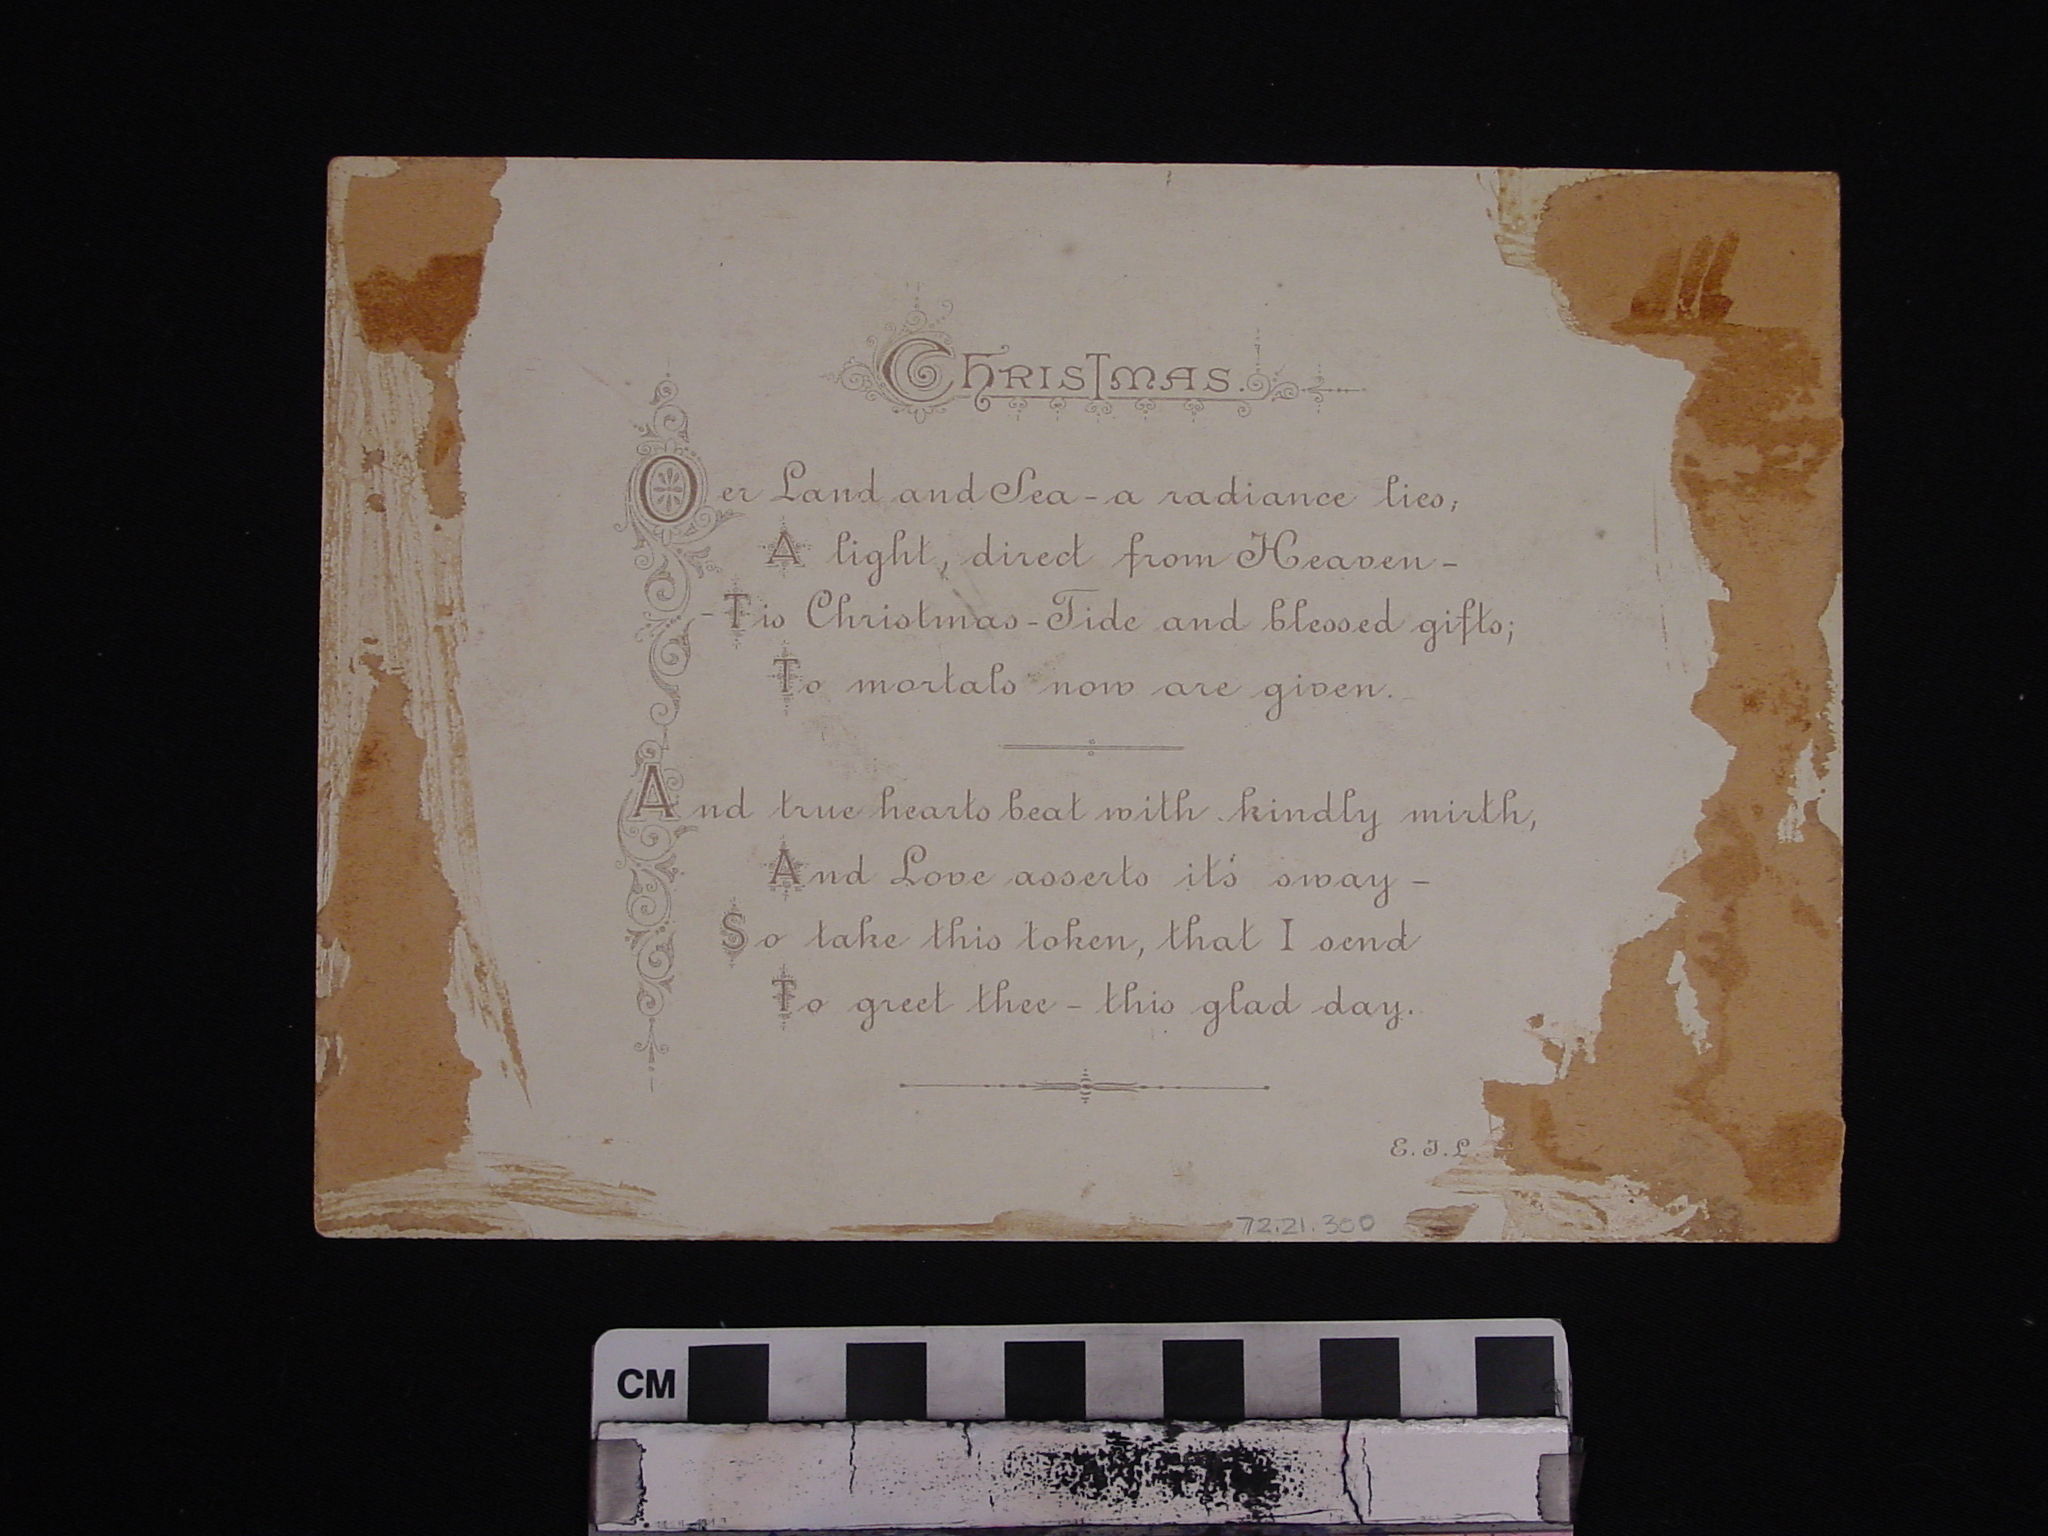 Christmas.
Oer Land and Sea - a radiance lies;
A light, direct from Heaven -
- Tis Christmas - Tide and blessed gifts;
To mortals now are given.
And true hearts beat with kindly mirth,
And Love asserts it's sway -
So take this token, that I send
To greet thee - this glad day.
E. J. L.
72.21.300
CM